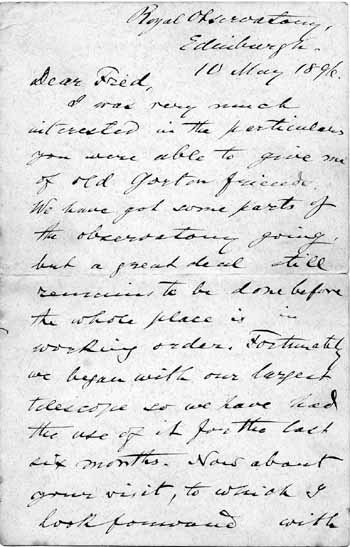 Royal Observatory,
Edinburgh.
10 May 1896.
Dear Fred,
I was very much
interested in the particulars
you were able to give me
of old Gorton friends.
We have got some parts of
the observatory going,
but a great deal still
remains to be done before
the whole place is in
working order. Fortunately
we began with our largest
telescope so we have had
the use of it for the last
six months. Now about
your visit, to which I
look forward with